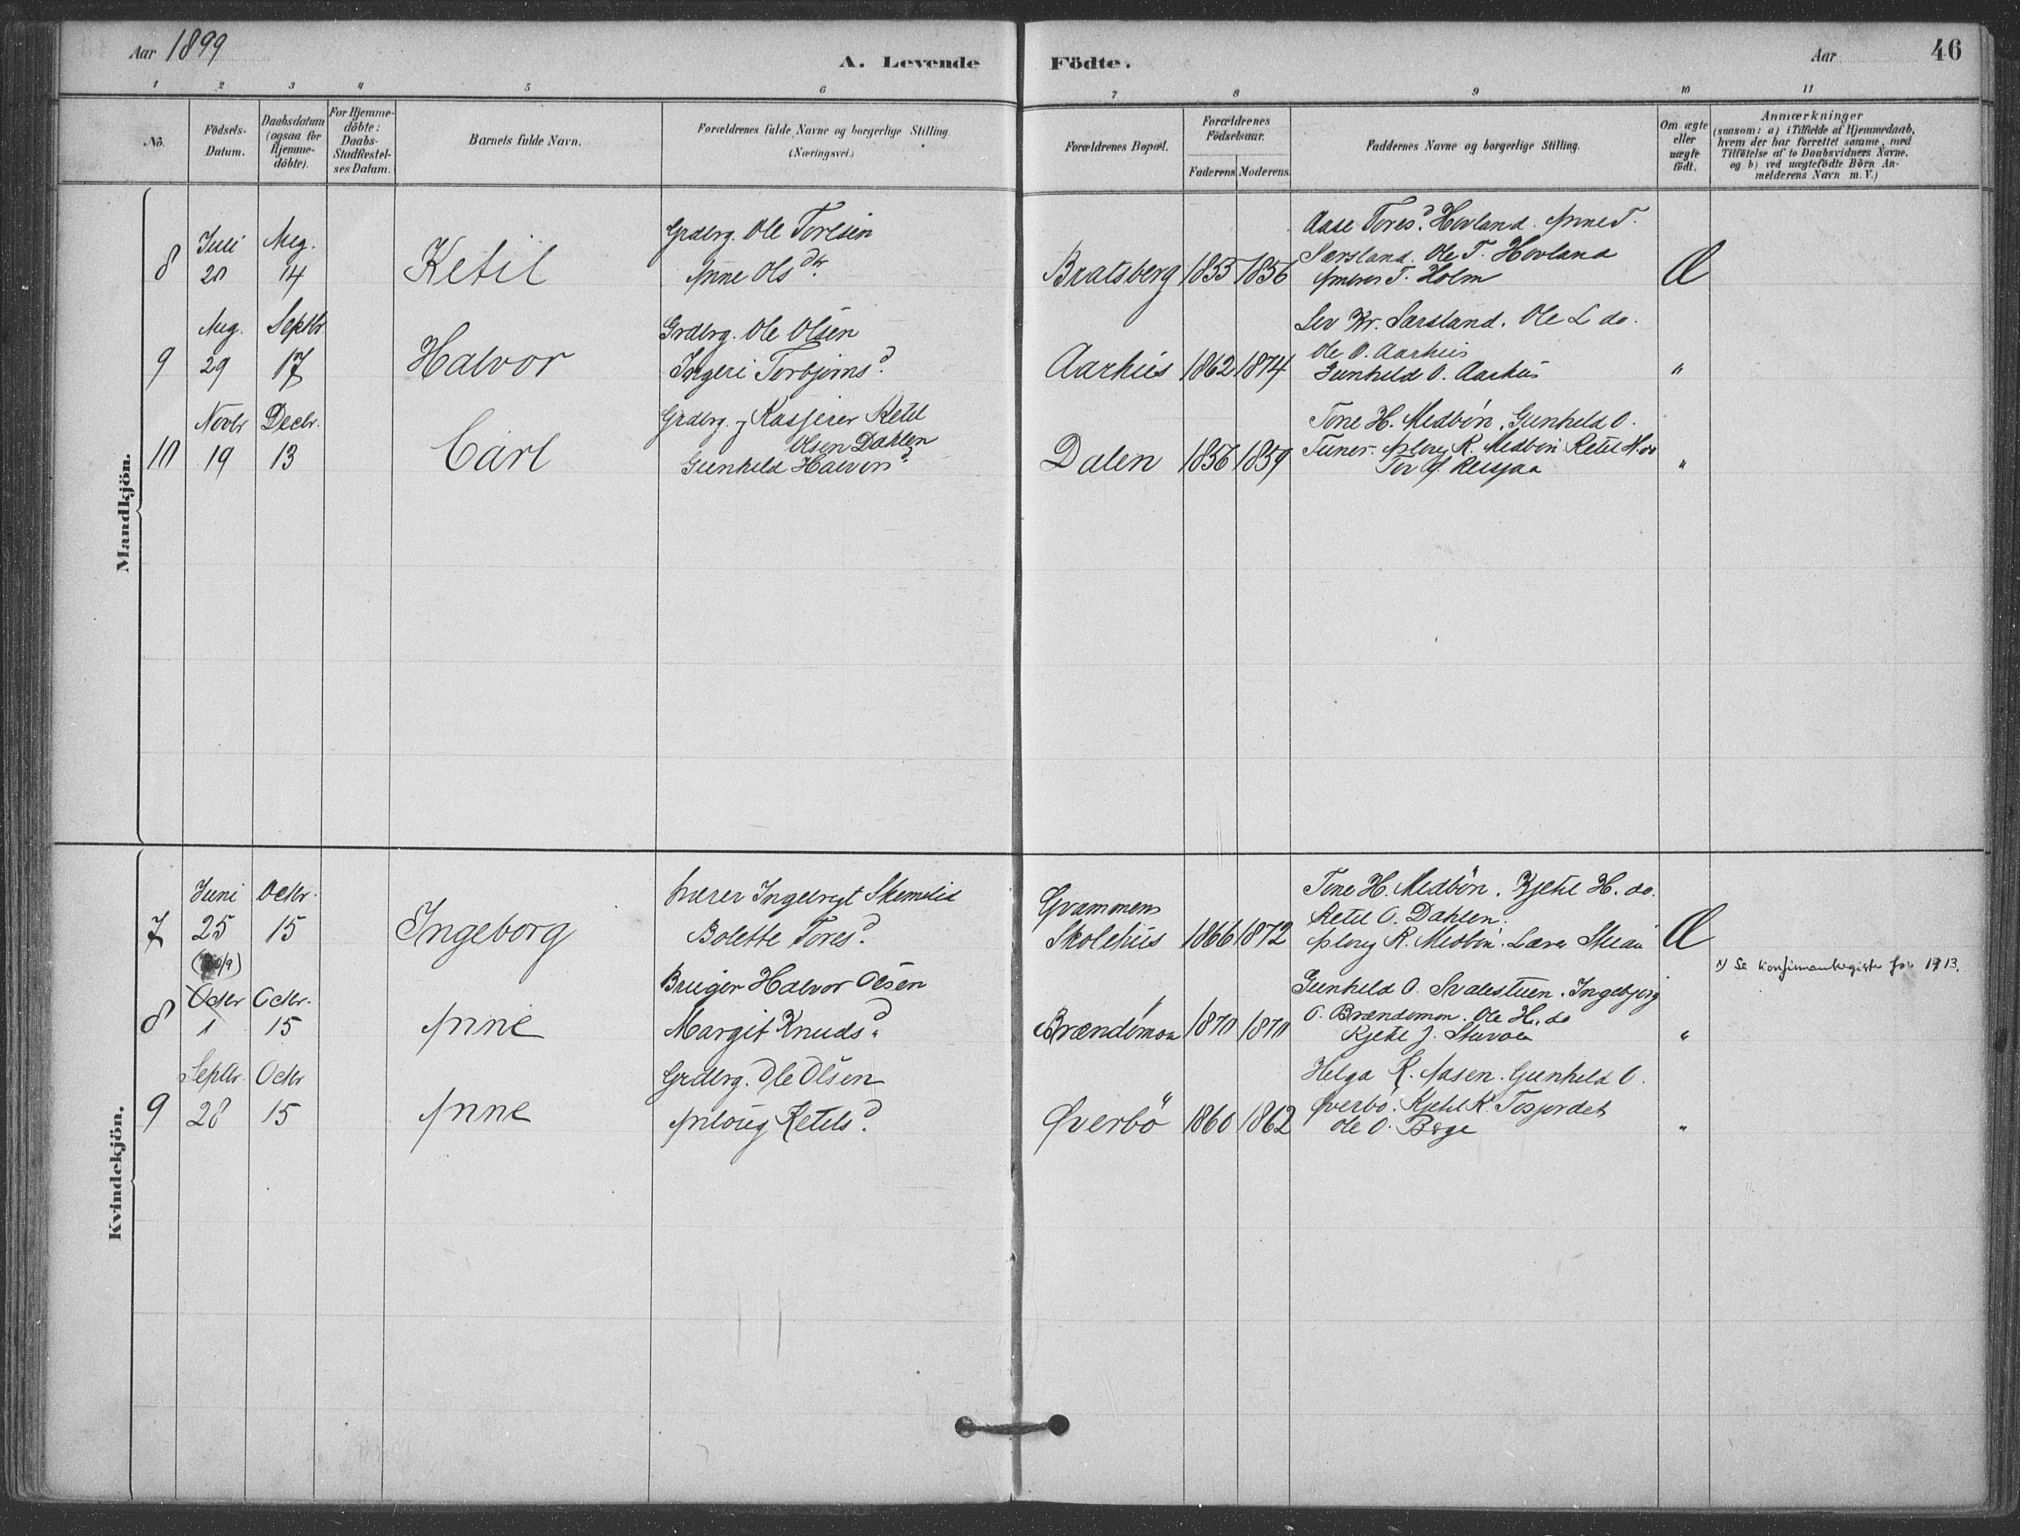 Aar 1899
A. Levende Födte.
Aar
46
1 2 3 4 5 6 7 8 9 10 11
No.
Födsels-
Datum.
Daabsdatum
(ogsaa for
Hjemme-
döbte).
For Hjemme-
döbte:
Daabs-
Stadfæstel-
ses Datum.
Barnets fulde Navn.
Forældrenes fulde Navne og borgerlige Stilling
(Næringsvei.)
Forældrenes Bopæl.
Forældrenes
Födselsaar.
Faderens. Moderens.
Faddernes Navne og borgerlige Stilling.
Om ægte
eller
uægte
födt.
Anmærkninger
(saasom: a) i Tilfælde af Hjemmedaab,
hvem der har forrettet samme, med
Tilföielse af to Daabsvidners Navne.
og b) ved uægtefödte Börn An-
melderens Navn m. V.)
Mandkjön.
8
Juli
20
Aug.
14
Ketil
Grdbrg. Ole Toresen
Anne Olsdtr.
Bratsberg 1855 1856
Aase Toresd. Hovland. Anne T.
Særsland. Ole T. Hovland
T. Holm
Æ
9
Aug.
29
Septbr
17
Halvor
Grdbrg. Ole Olsen
Ingeri Torbjørnsd.
Aarhus 1862 1874
Lev Kr. Særsland. Ole L do.
Ole O. Aarhus
Gunhild O. Aarhus
"
10
Novbr
19
Decbr.
13
Carl
Grdbrg. og Kasjerer Ketil
Olsen Dahlen
Gunhild Halvorsd.
Dalen 1856 1859
Tone H. Medbøn. Gunhild O.
R. Medbøn Ketil H. do
"
Kvindekjön.
7
Juni
25
Octbr.
15
Ingeborg
Lærer Ingebregt Skemelid
Bolette Toresd.
Gvammens
Skolehus 1866 1872
Tone H. Medbøn. Kjetil H. do.
Ketil O. Dahlen.
R. Medbøn. Lærer
Æ
8
Octbr
1
Octbr.
15
Anne
Bruger Halvor Olsen
Margit Knudsd.
Brændemoen 1870 1870
Gunhild O. Svalestuen. Ingebjørg
O. Brændemoen. Ole H. do
Kjetil J.
"
1) Se konfirmantregister for 1913.
9
Septbr.
28
Octbr
15
Anne
Grdbrg. Ole Olsen
Aslaug Ketilsd.
Øverbö 1860 1862
Helga K. Aasen. Gunhild O.
Øverbö. Kjetil K. Tosjordet
Ole O. Bøge
"